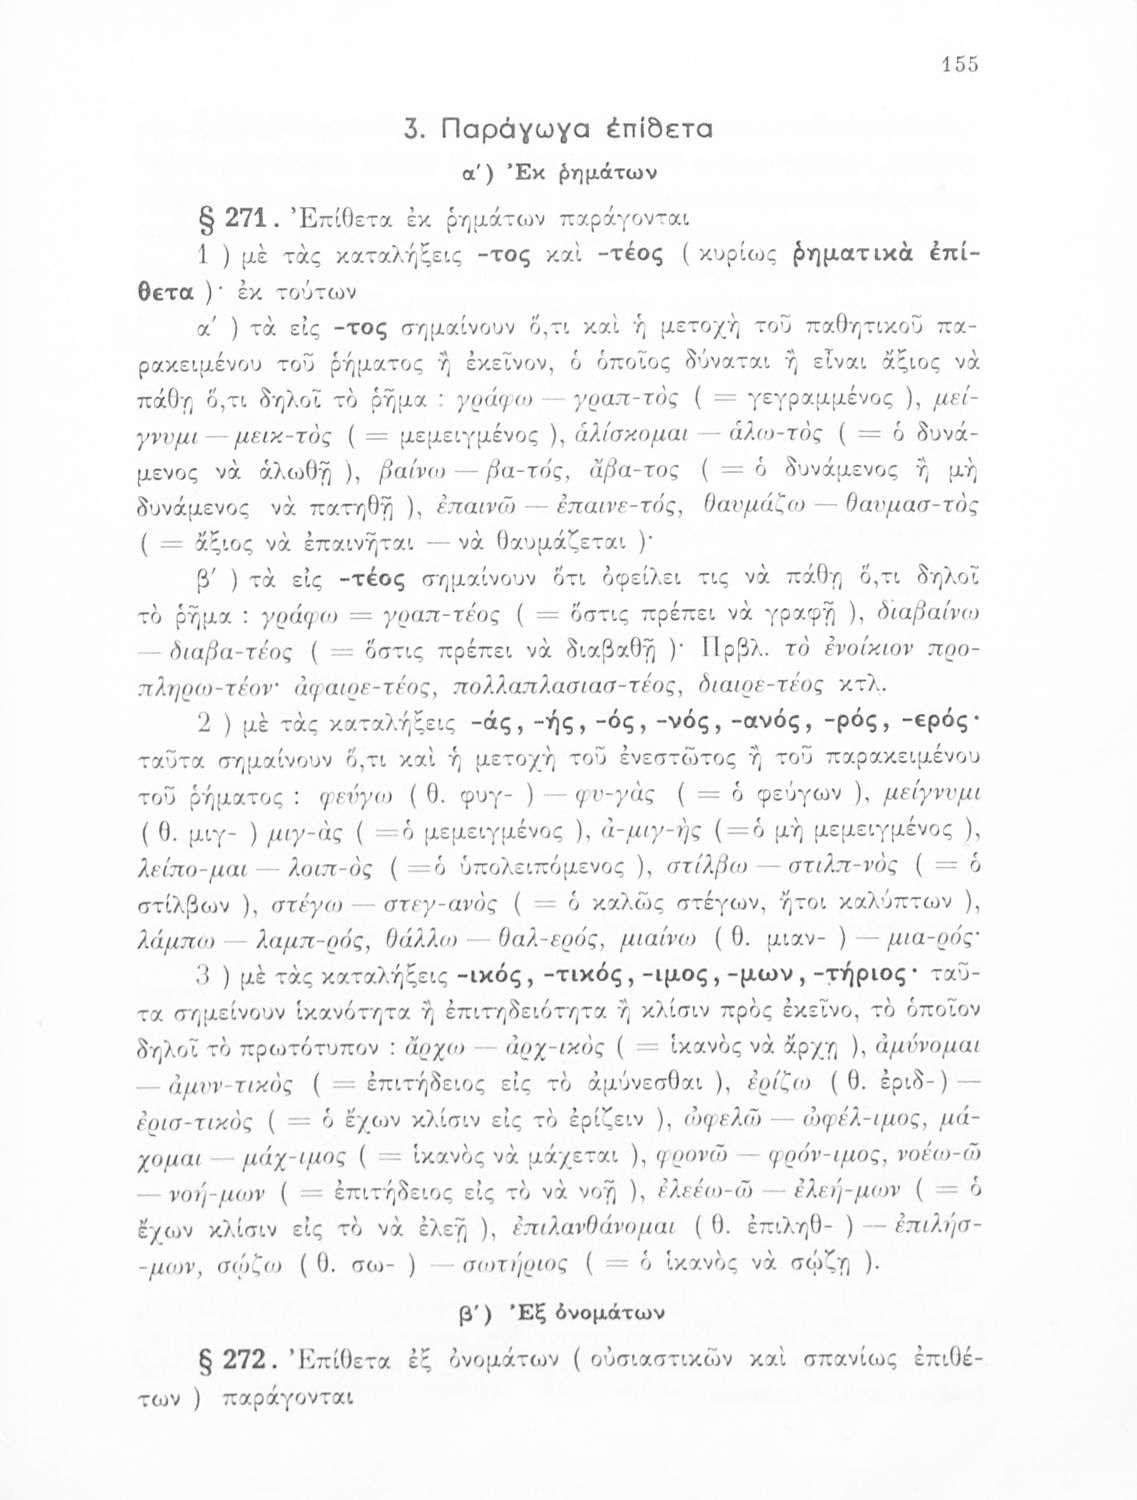 155
3. Παράγωγα ἐπίθετα
α') Ἐκ ῥημάτων
§ 271. Ἐπίθετα ἐκ ῥημάτων παράγονται
1 ) μὲ τὰς καταλήξεις -τος καὶ -τέος ( κυρίως ῥηματικὰ ἐπί-
θετα )· ἐκ τούτων
α' ) τὰ εἰς -τος σημαίνουν ὅ,τι καὶ ἡ μετοχὴ τοῦ παθητικοῦ πα-
ρακειμένου τοῦ ῥήματος ἢ ἐκεῖνον, ὁ ὁποῖος δύναται ἢ εἶναι ἄξιος νὰ
πάθῃ ὅ,τι δηλοῖ τὸ ῥῆμα : γράφω — γραπ-τὸς ( = γεγραμμένος ), μεί-
γνυμι — μεικ-τὸς ( = μεμειγμένος ), ἁλίσκομαι — ἁλω-τὸς ( = ὁ δυνά-
μενος νὰ ἁλωθῇ ), βαίνω — βα-τός, ἄβα-τος ( = ὁ δυνάμενος ἢ μὴ
δυνάμενος νὰ πατηθῇ ), ἐπαινῶ — ἐπαινε-τός, θαυμάζω — θαυμασ-τὸς
( = ἄξιος νὰ ἐπαινῆται — νὰ θαυμάζεται )·
β' ) τὰ εἰς -τέος σημαίνουν ὅτι ὀφείλει τις νὰ πάθῃ ὅ,τι δηλοῖ
τὸ ῥῆμα : γράφω = γραπ-τέος ( = ὅστις πρέπει νὰ γραφῇ ), διαβαίνω
— διαβα-τέος ( = ὅστις πρέπει νὰ διαβαθῇ )· Πρβλ. τὸ ἐνοίκιον προ-
πληρω-τέον· ἀφαιρε-τέος, πολλαπλασιασ-τέος, διαιρε-τέος κτλ.
2 ) μὲ τὰς καταλήξεις -άς, -ής, -ός, -νός, -ανός, -ρός, -ερός·
ταῦτα σημαίνουν ὅ,τι καὶ ἡ μετοχὴ τοῦ ἐνεστῶτος ἢ τοῦ παρακειμένου
τοῦ ῥήματος : φεύγω ( θ. φυγ- ) — φυ-γὰς ( = ὁ φεύγων ), μείγνυμι
( θ. μιγ- ) μιγ-ὰς ( =ὁ μεμειγμένος ), ἀ-μιγ-ὴς (=ὁ μὴ μεμειγμένος ),
λείπο-μαι — λοιπ-ὸς ( =ὁ ὑπολειπόμενος ), στίλβω — στιλπ-νὸς ( = ὁ
στίλβων ), στέγω — στεγ-ανὸς ( = ὁ καλῶς στέγων, ἤτοι καλύπτων ),
λάμπω — λαμπ-ρός, θάλλω — θαλ-ερός, μιαίνω ( θ. μιαν- ) — μια-ρός·
3 ) μὲ τὰς καταλήξεις -ικός, -τικός, -ιμος, -μων, -τήριος· ταῦ-
τα σημείνουν ἱκανότητα ἢ ἐπιτηδειότητα ἢ κλίσιν πρὸς ἐκεῖνο, τὸ ὁποῖον
δηλοῖ τὸ πρωτότυπον : ἄρχω — ἀρχ-ικὸς ( = ἱκανὸς νὰ ἄρχῃ ), ἀμύνομαι
— ἀμυν-τικὸς ( = ἐπιτήδειος εἰς τὸ ἀμύνεσθαι ), ἐρίζω ( θ. ἐριδ-) —
ἐρισ-τικὸς ( = ὁ ἔχων κλίσιν εἰς τὸ ἐρίζειν ), ὠφελῶ — ὠφέλ-ιμος, μά-
χομαι — μάχ-ιμος ( = ἱκανὸς νὰ μάχεται ), φρονῶ — φρόν-ιμος, νοέω-ῶ
— νοή-μων ( = ἐπιτήδειος εἰς τὸ νὰ νοῇ ), ἐλεέω-ῶ — ἐλεή-μων ( = ὁ
ἔχων κλίσιν εἰς τὸ νὰ ἐλεῇ ), ἐπιλανθάνομαι ( θ. ἐπιληθ- ) — ἐπιλήσ-
-μων, σῴζω ( θ. σω- ) — σωτήριος ( = ὁ ἱκανὸς νὰ σῴζῃ ).
β') Ἐξ ὀνομάτων
§ 272. Ἐπίθετα ἐξ ὀνομάτων ( οὐσιαστικῶν καὶ σπανίως ἐπιθέ-
των ) παράγονται